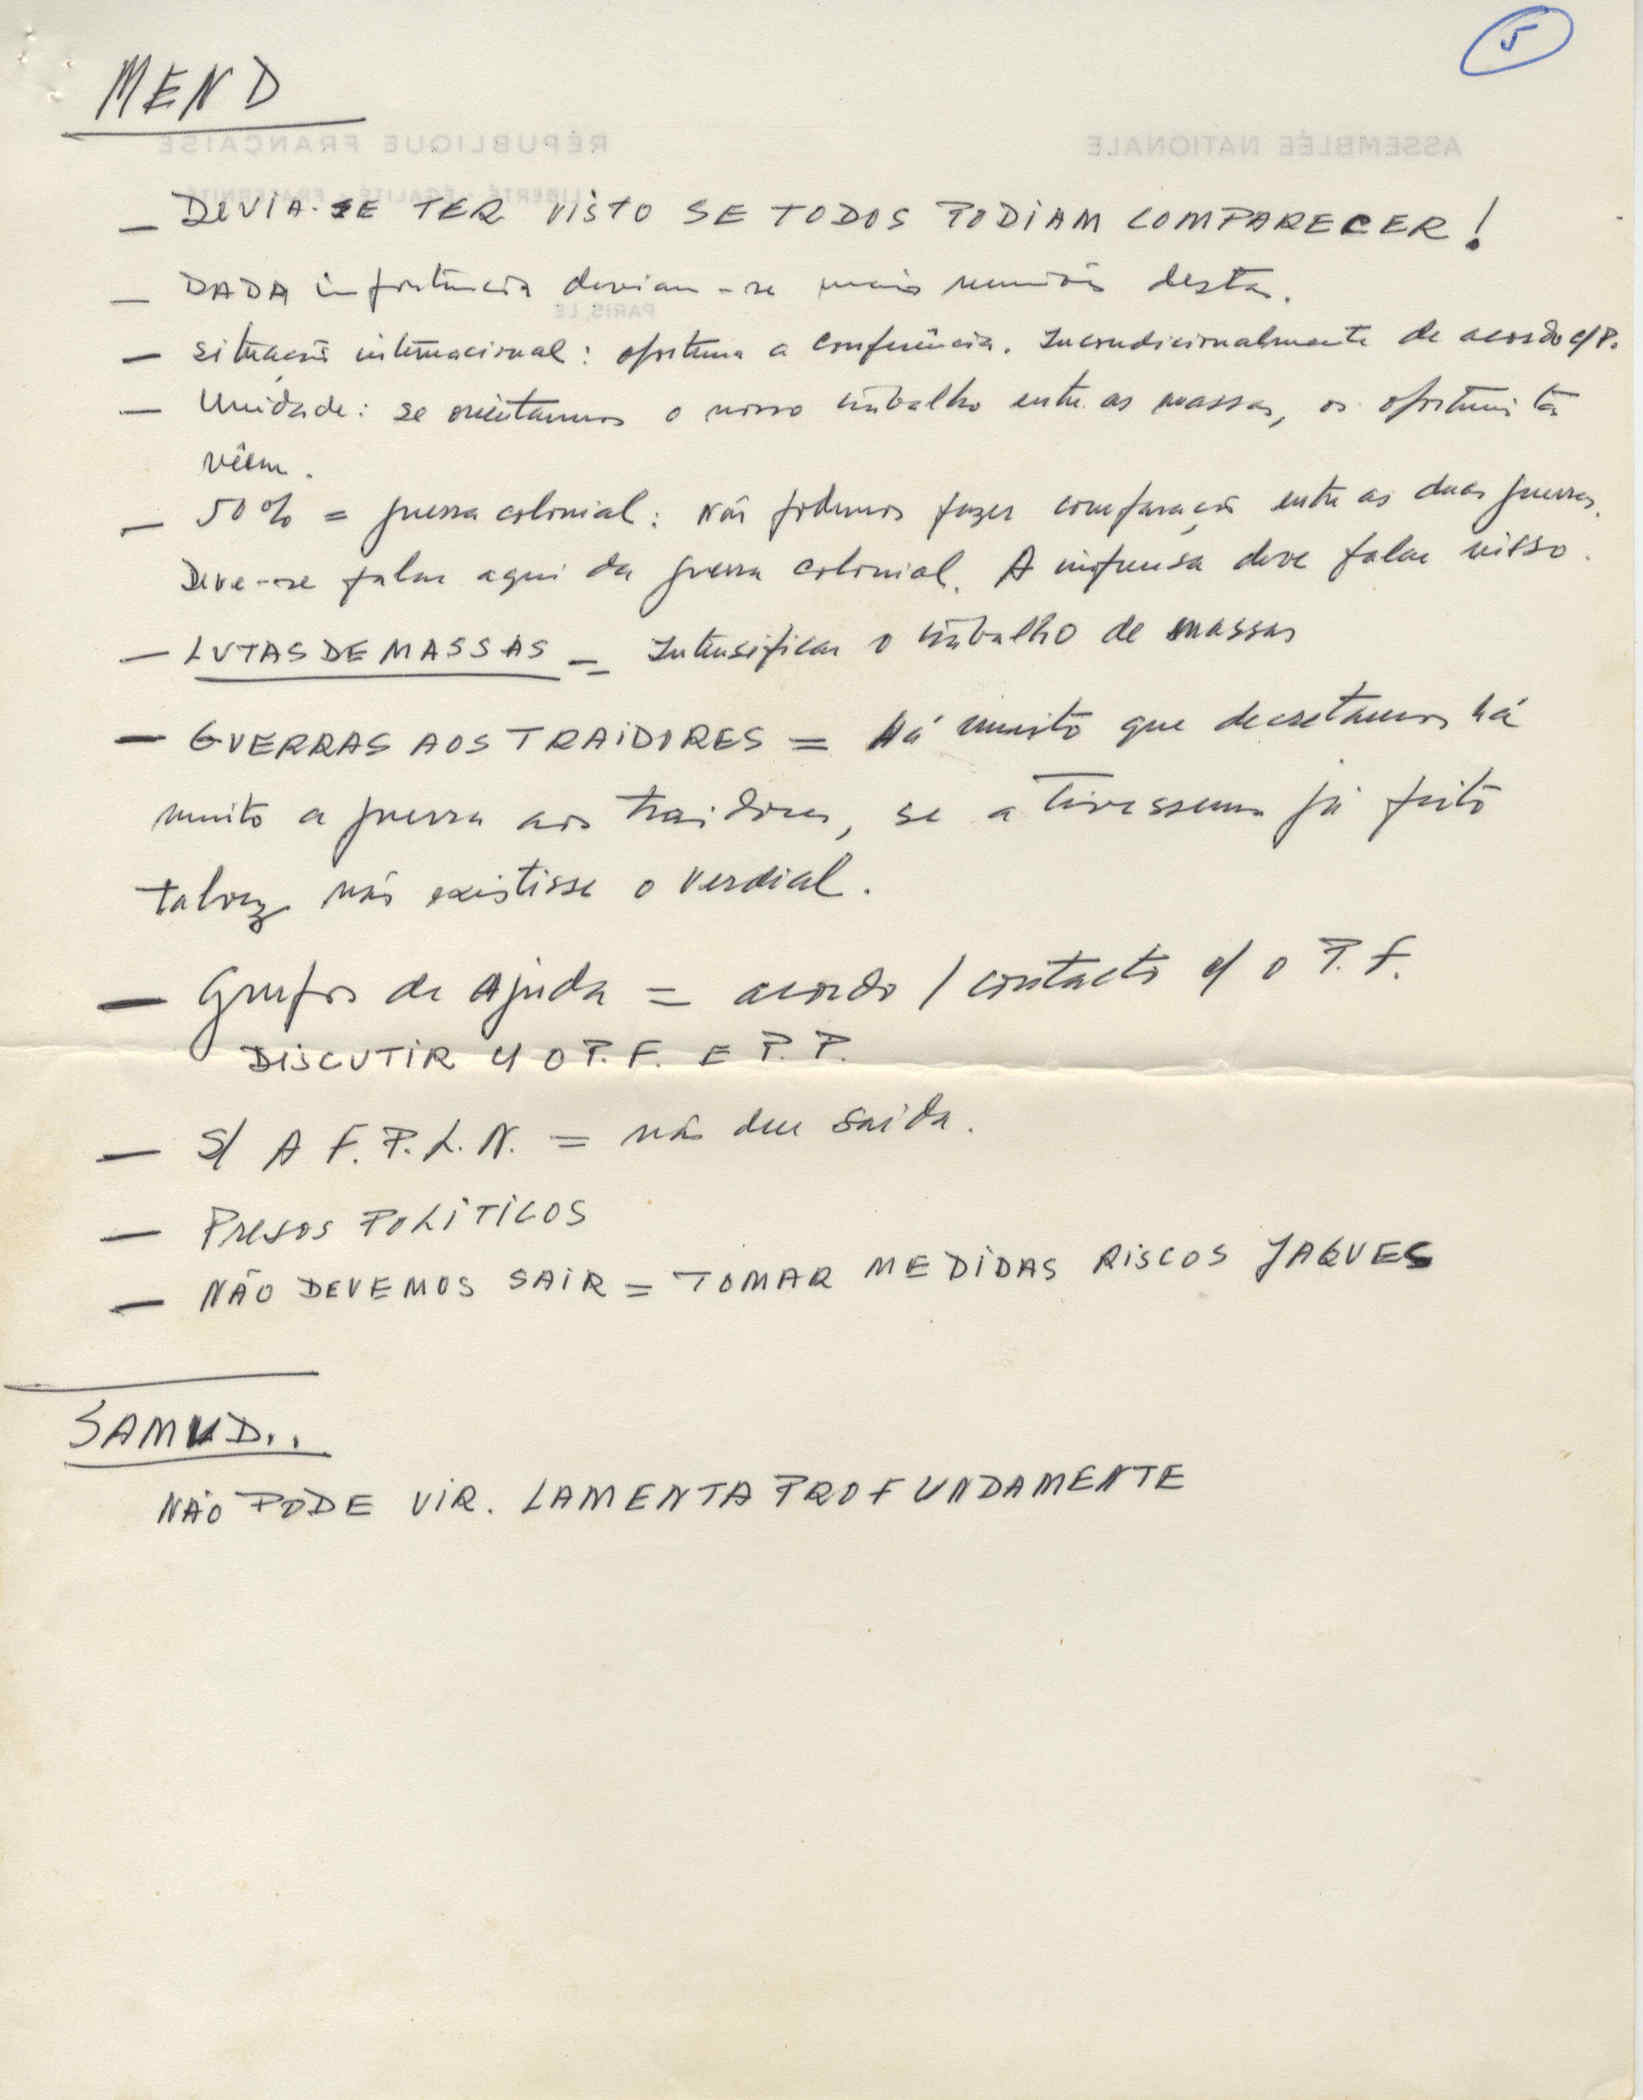 5
MEND
RÉPUBLIQUE FRANÇAISE ASSEMBLÉE NATIONALE
LIBERTÉ - ÉGALITÉ - FRATERNITÉ
— DEVIA-SE TER VISTO SE TODOS PODIAM COMPARECER!
— DADA importância deviam-se mais reuniões destas.
PARIS, LE
— Situação internacional: oportuna a conferência. Incondicionalmente de acordo c/P.
— Unidade: se orientarmos o nosso trabalho entre as massas, os oportunistas
vêem.
— 50% = guerra colonial: Não podemos fazer comparação entre as duas guerras.
Deve-se falar aqui da guerra colonial. A imprensa deve falar nisso.
— LUTAS DE MASSAS = Intensificar o trabalho de massas
— GUERRAS AOS TRAIDORES = Há muito que decretamos há
muito a guerra aos traidores, se a tivessemos já feito
talvez não existisse o verdial.
— Grupos de Ajuda = acordo / contacto c/ o P. F.
DISCUTIR C/ O P. F. E P. P.
— S/ A F. P. L. N. = não deu saida.
— Presos POLITICOS
— NÃO DEVEMOS SAIR = TOMAR MEDIDAS RISCOS JAQUES
SAMUD..
NÃO PODE VIR. LAMENTA PROFUNDAMENTE